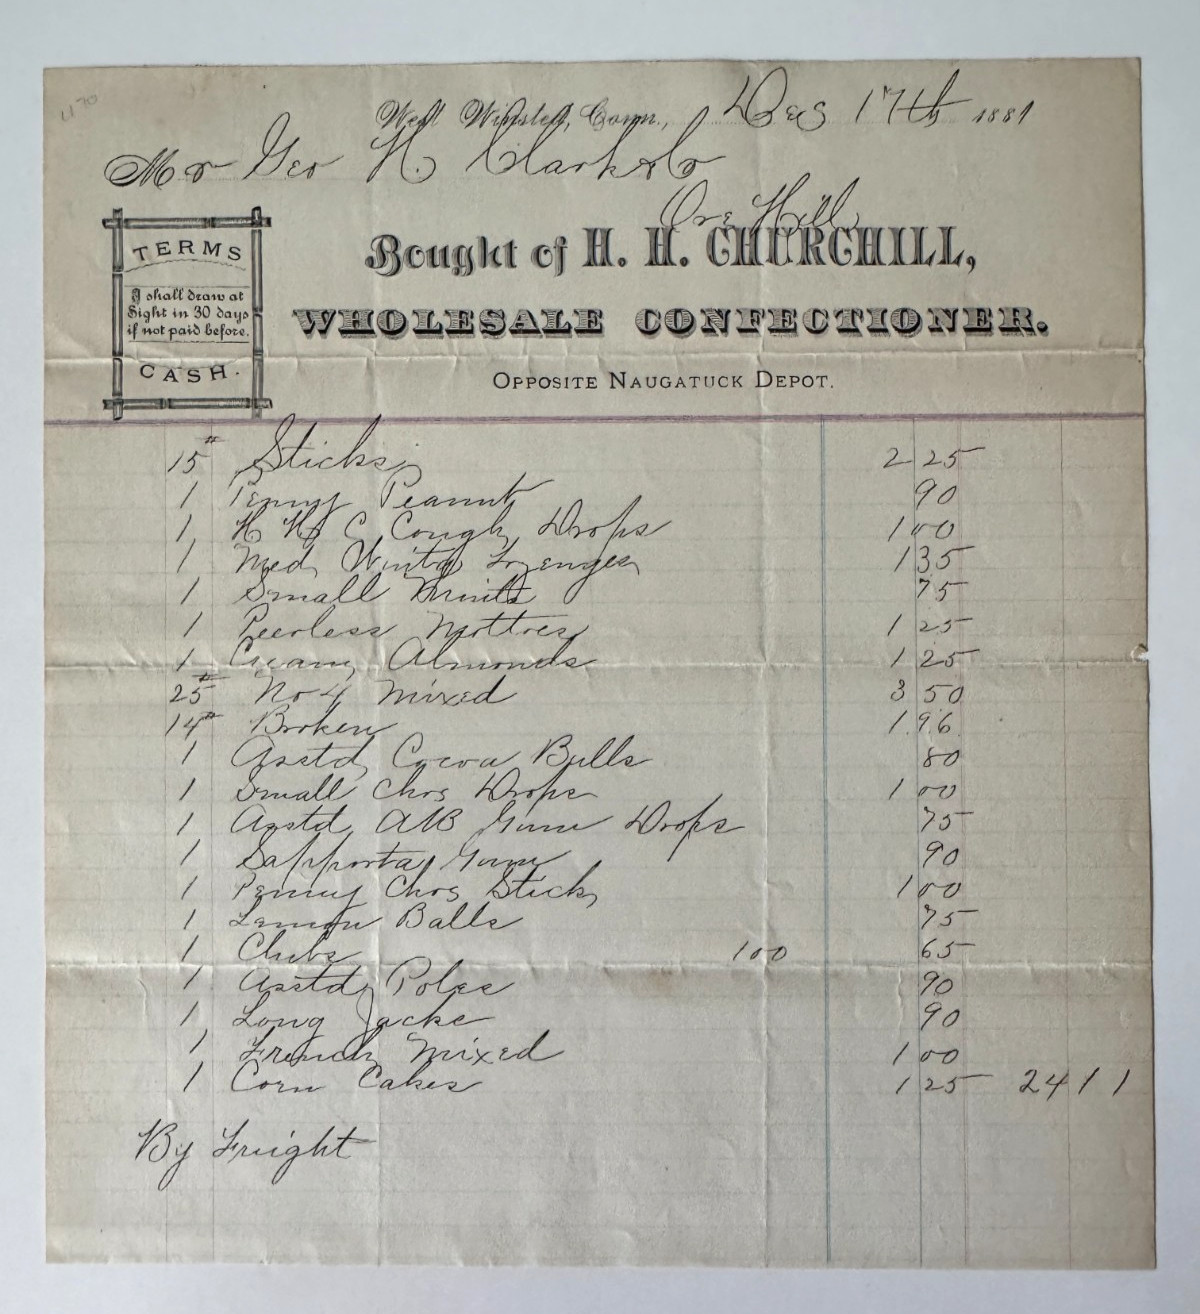 1170
West Winsted, Conn., Dec 17th 1881
Mr Geo H. Clark & Co
Ore Hill
TERMS
I shall draw at
Sight in 30 days
if not paid before.
CASH.
Bought of H. H. CHURCHILL,
WHOLESALE CONFECTIONER.
OPPOSITE NAUGATUCK DEPOT.
15# Sticks 2 25
1 Penny Peanut 90
1 H H C Cough Drops 1 00
1 Med Wint Lozenges 1 35
1 Small Mints 75
1 Peerless Mottoes 1 25
1 Cream Almonds 1 25
25# No 4 Mixed 3 50
14# Broken 1 96
1 Asstd Cocoa Balls 80
1 Small Choc Drops 1 00
1 Asstd AB Gum Drops 75
1 Sapporta Gum 90
1 Penny Choc Stick 1 00
1 Lemon Balls 75
1 Clubs 100 65
1 Asstd Poles 90
1 Long Jacks 90
1 French Mixed 1 00
1 Corn Cakes 1 25 24 11
By Freight